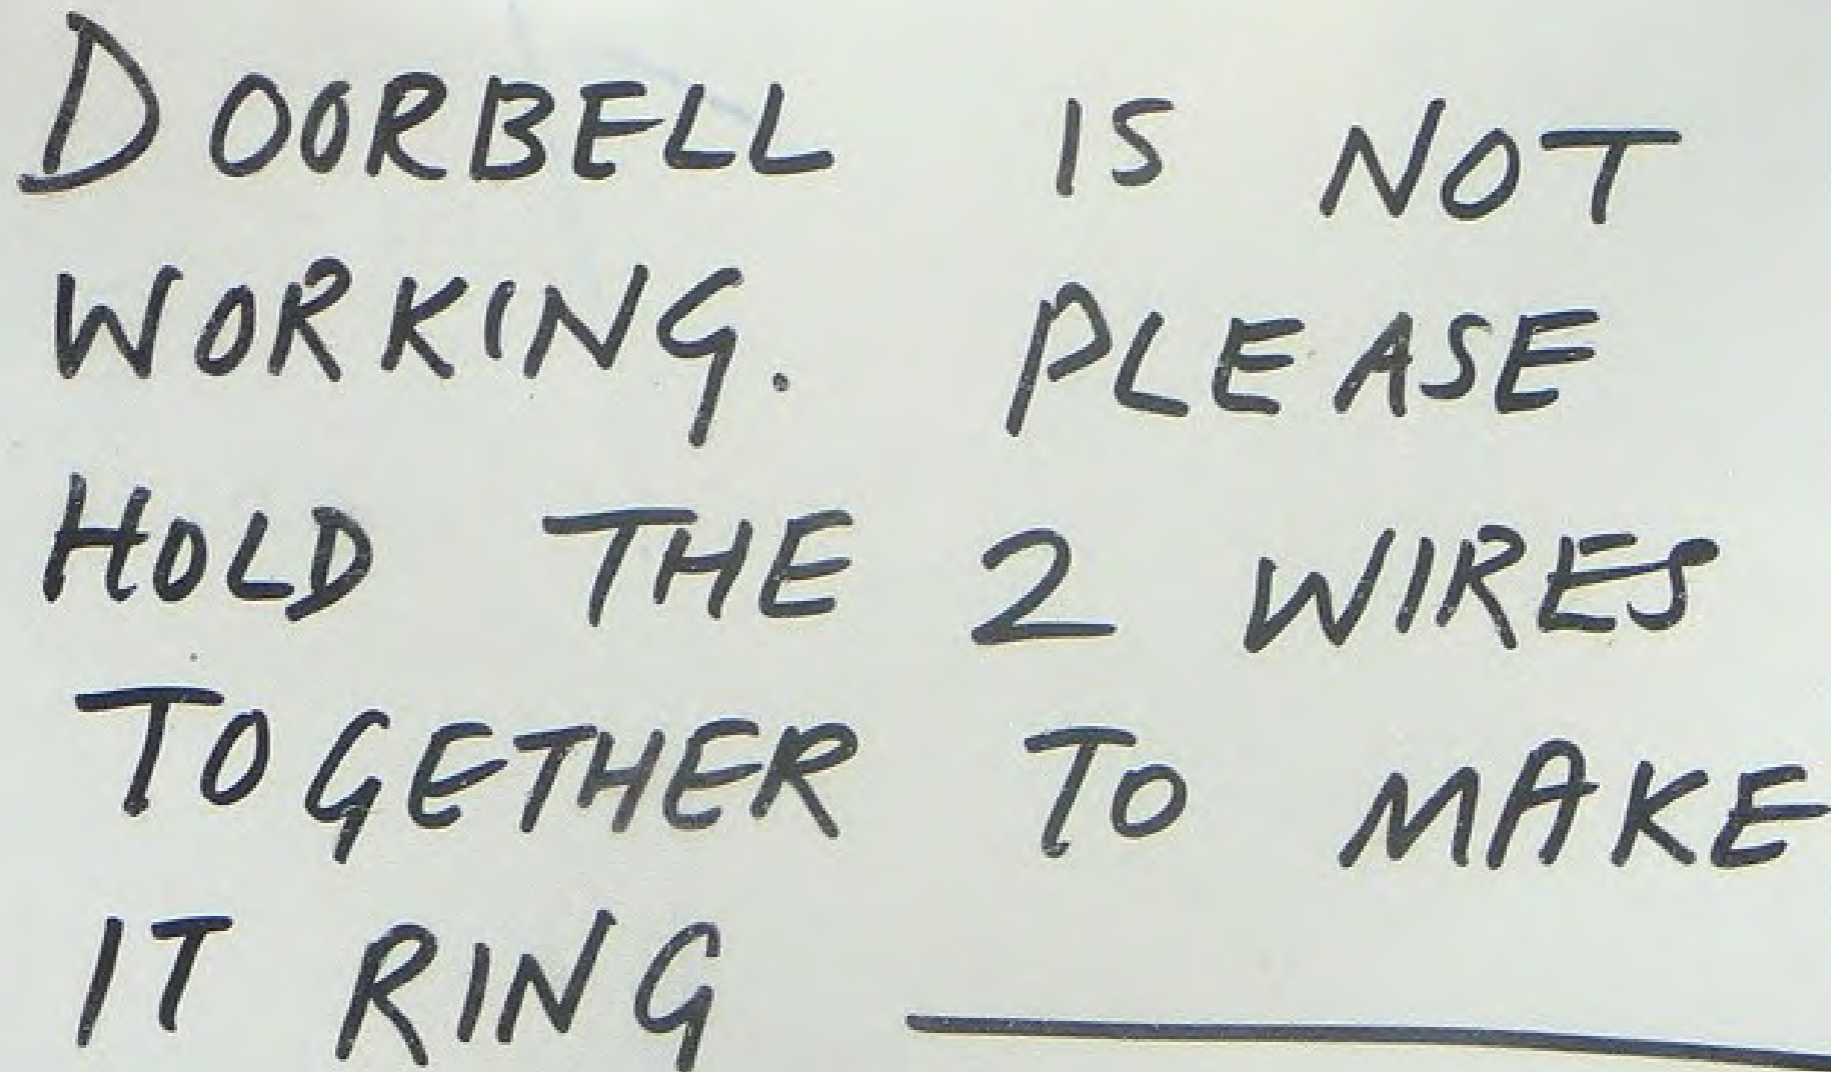 DOORBELL IS NOT
WORKING. PLEASE
HOLD THE 2 WIRES
TOGETHER TO MAKE
IT RING